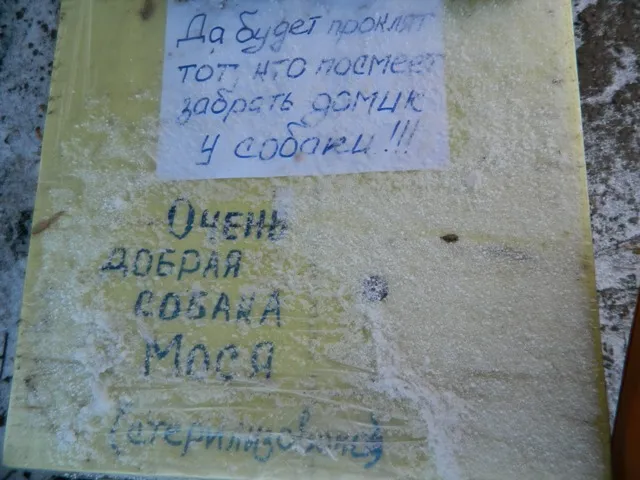 Да будет проклят
тот, кто посмеет
забрать домик
у собаки!!!
Очень
добрая
собака
Мося